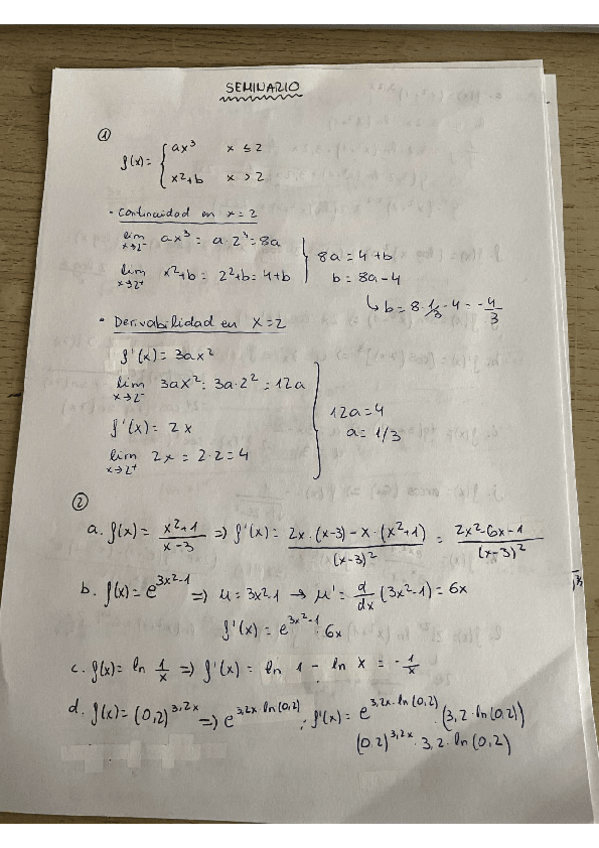 SEMINARIO
①
f(x) = { ax³ x ≤ 2
x²+b x > 2
• Continuidad en x=2
lim x→2⁻ ax³ = a·2³ = 8a
lim x→2⁺ x²+b = 2²+b = 4+b
8a = 4+b
b = 8a-4
↳ b = 8·1/3 - 4 = -4/3
• Derivabilidad en x=2
f'(x) = 3ax²
lim x→2⁻ 3ax² = 3a·2² = 12a
f'(x) = 2x
lim x→2⁺ 2x = 2·2 = 4
12a = 4
a = 1/3
②
a. f(x) = (x²+1)/(x-3) ⇒ f'(x) = (2x·(x-3) - x·(x²+1))/(x-3)² = (2x²-6x-1)/(x-3)²
b. f(x) = e^(3x²-1) ⇒ μ = 3x²-1 → μ' = d/dx (3x²-1) = 6x
f'(x) = e^(3x²-1)·6x
c. f(x) = ln 1/x ⇒ f'(x) = ln 1 - ln x = -1/x
d. f(x) = (0,2)^(3,2x) ⇒ e^(3,2x·ln(0,2)) ; f'(x) = e^(3,2x·ln(0,2))·(3,2·ln(0,2))
(0.2)^(3,2x)·3,2·ln(0,2)